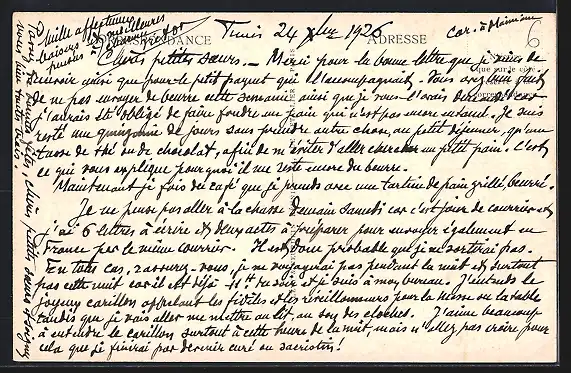 Tunis 24 Xbre 1926
CORRESPONDANCE
ADRESSE
Chères petites sœurs. – Merci pour la bonne lettre que je viens de
recevoir ainsi que pour le petit paquet qui l'accompagnait. Vous avez bien fait
de ne pas envoyer de beurre cette semaine ainsi que je vous l'avais demandé car
j'aurais été obligé de faire fondre un pain qui n'est pas encore entamé. Je suis
resté une quinzaine de jours sans prendre autre chose, au petit déjeuner, qu'une
tasse de thé ou de chocolat, afin de m'éviter d'aller chercher un petit pain. C'est
ce qui vous explique pourquoi il me reste encore du beurre.
Maintenant je fais du café que je prends avec une tartine de pain grillé, beurré.
Je ne pense pas aller à la chasse demain samedi car c'est jour de courrier et
j'ai 6 lettres à écrire et deux actes à préparer pour envoyer également en
France par le même courrier. Il est donc probable que je ne sortirai pas.
En tous cas, rassurez-vous, je ne voyagerai pas pendant la nuit et surtout
pas cette nuit car il est déjà 11h du soir et je suis à mon bureau. J'entends le
joyeux carillon appelant les fidèles et les réveillonneurs pour la messe ou la table
tandis que je vais aller me mettre au lit, au son des cloches. J'aime beaucoup
à entendre le carillon surtout à cette heure de la nuit, mais n'allez pas croire pour
cela que je finirai par devenir curé ou sacristain!
Mille affectueux
baisers
meilleures
chères petites sœurs